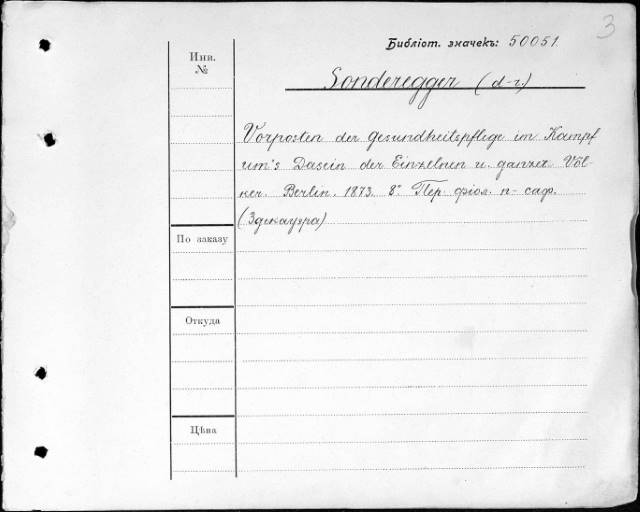 3
Библіот. значекъ: 50051.
Инв.
№
Sonderegger (d-r.)
Vorposten der Gesundheitspflege im Kampf
um's Dasein der Einzelnen u. ganzer Völ-
ker. Berlin. 1873. 8°. Пер. фіол. п- саф.
(Здекауэра)
По заказу
Откуда
Цѣна